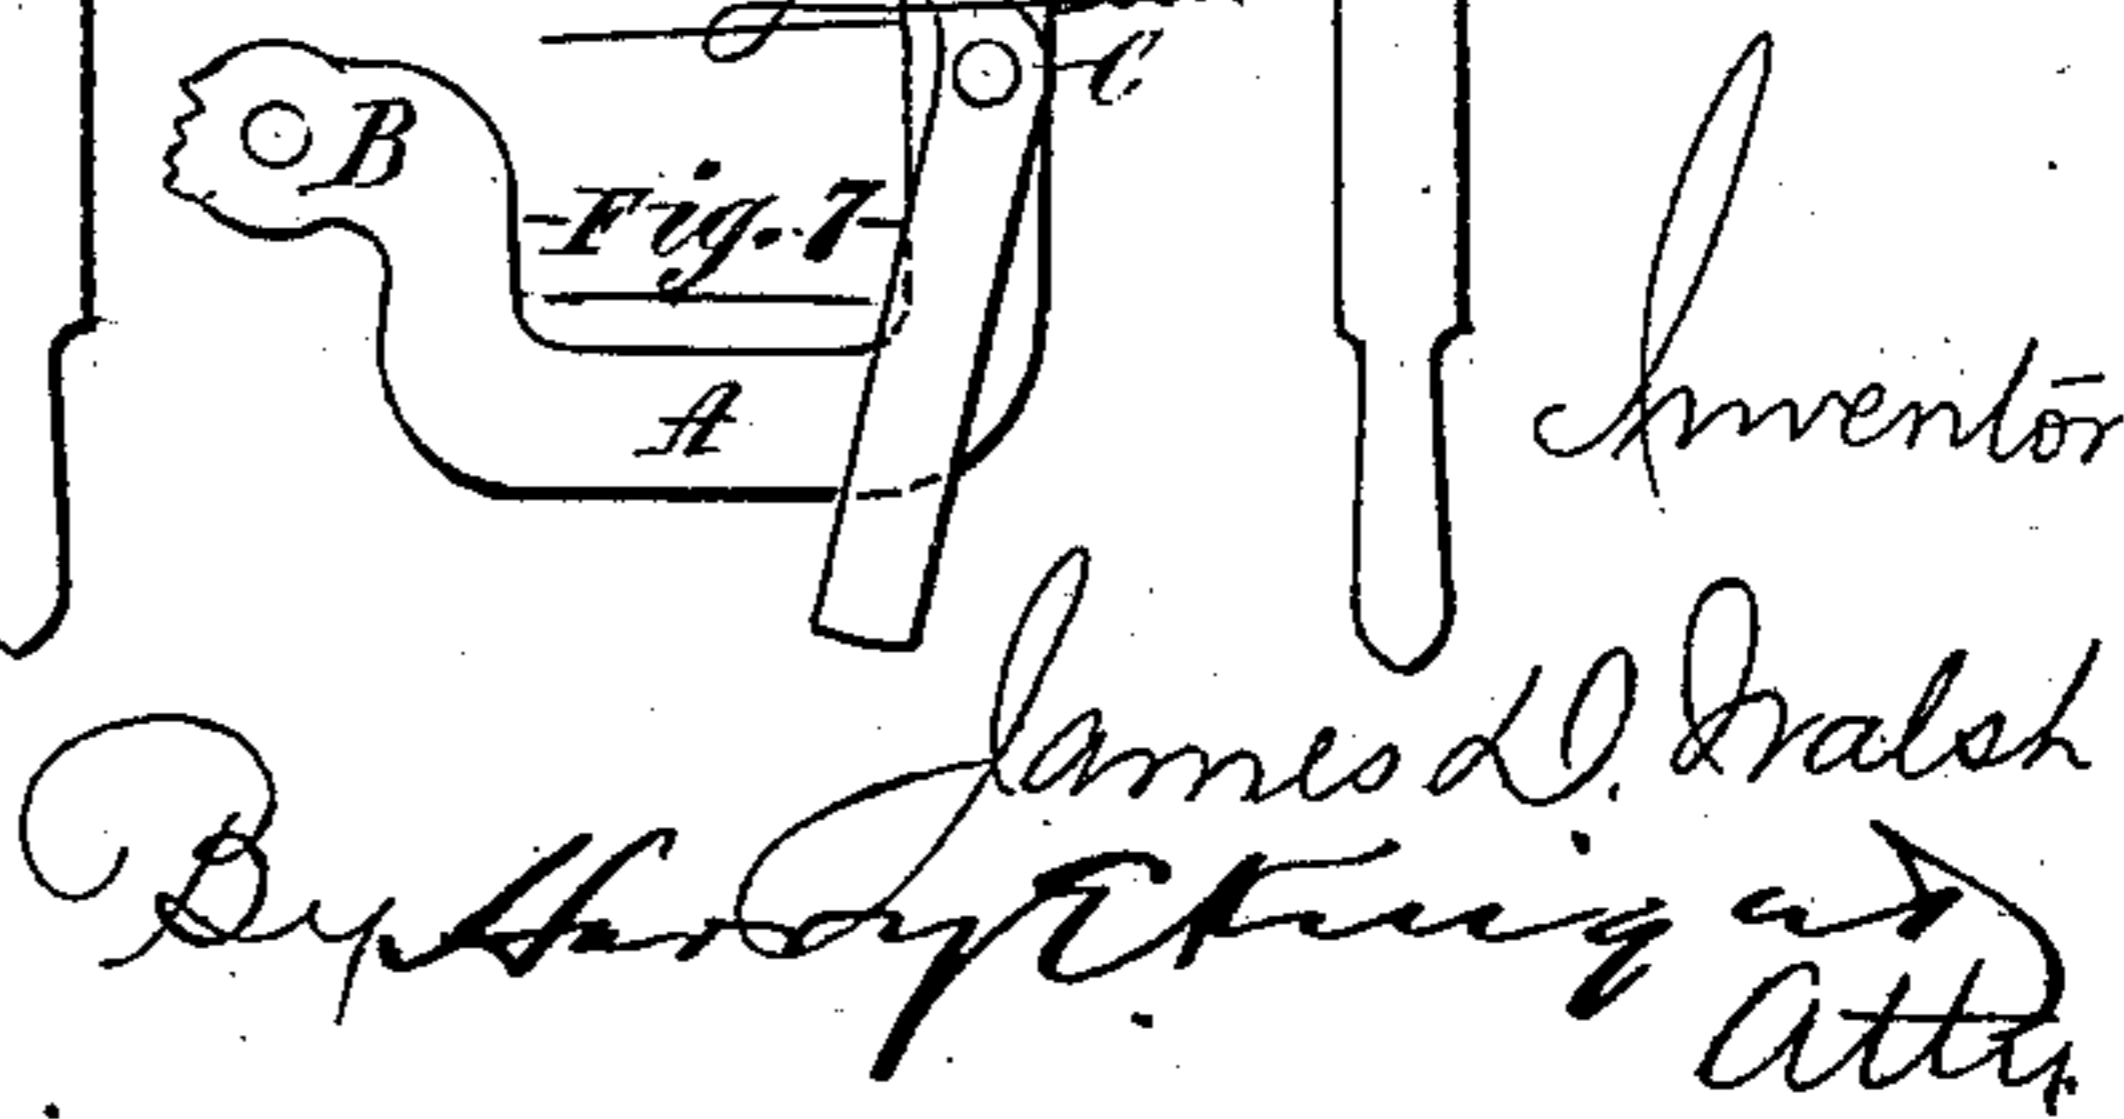 C
B
Fig. 7
A
Inventor
James D. Walsh
By Harvey E King
Atty.